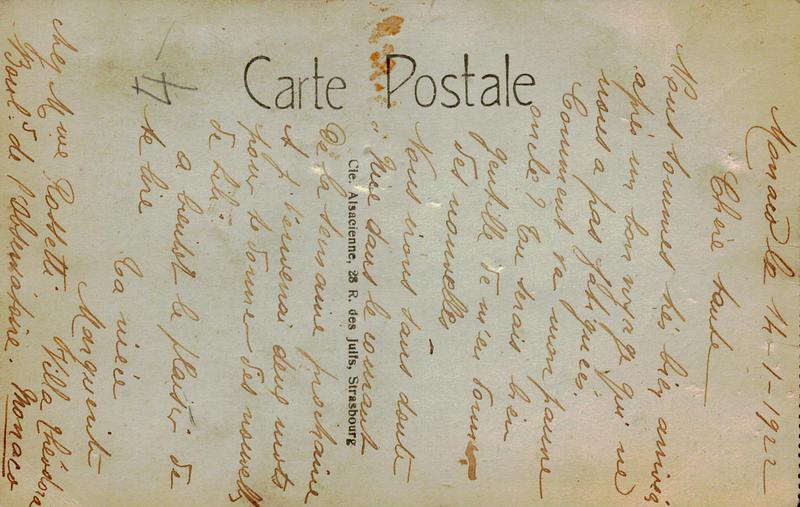 Carte Postale
Cie. Alsacienne, 28 R. des Juifs, Strasbourg
Monaco le 14-1-1922
Chère tante
Nous sommes très bien arrivés
après un bon voyage qui ne
nous a pas fatiguées.
Comment va mon pauvre
oncle? Tu serais bien
gentille de m'en donner
des nouvelles -
Nous irons sans doute
à Nice dans le courant
de la semaine prochaine
et je t'enverrai deux mots
pour te donner des nouvelles
de Lili.
à bientôt le plaisir de
te lire
Ta nièce
Marguerite
chez Mme Rossetti Villa Théodora
Boul.d de l'Observatoire. Monaco